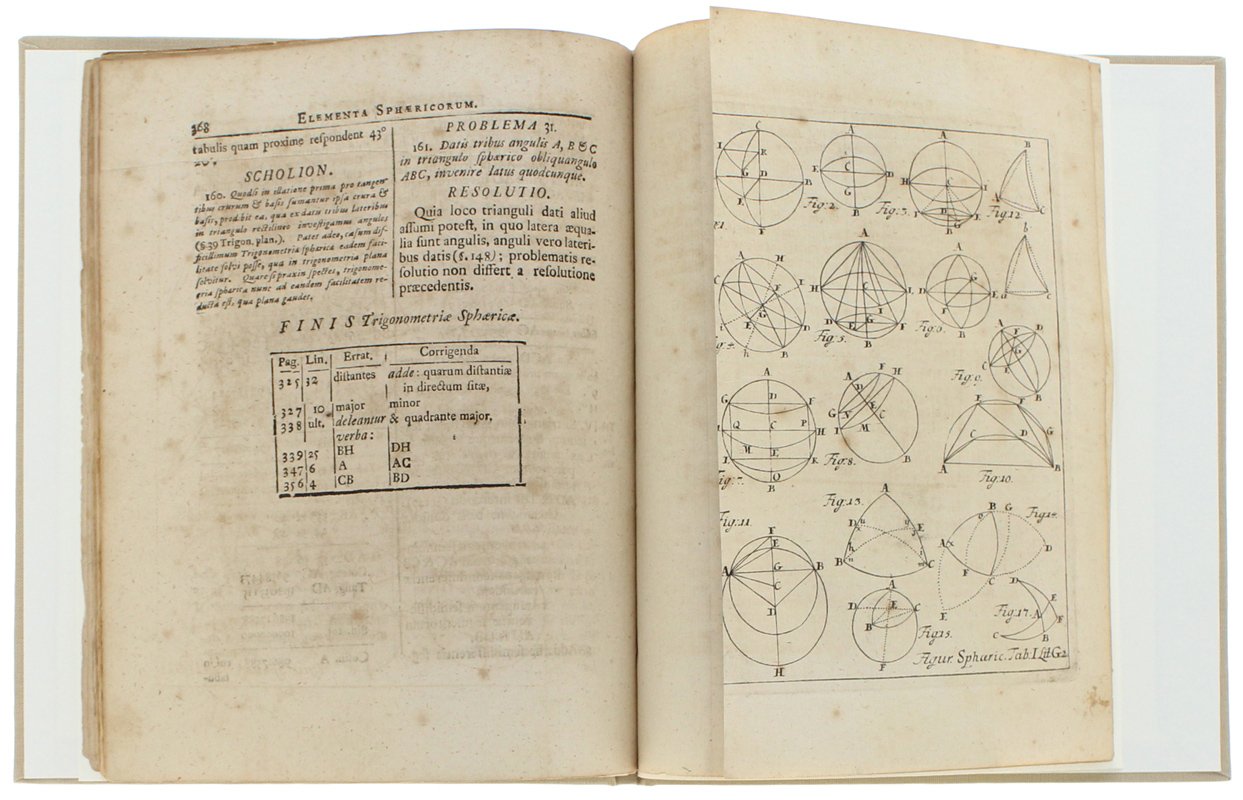 368
ELEMENTA SPHÆRICORUM.
tabulis quam proxime reſpondent 43°
20'.
SCHOLION.
160. Quodſi in illatione prima pro tangen-
tibus crurum & baſis ſumantur ipſa crura &
baſis, prodibit ea, qua ex datis tribus lateribus
in triangulo rectilineo inveſtigamus angulos
(§ 39 Trigon. plan.). Patet adeo, caſum dif-
ficillimum Trigonometriæ ſphæricæ eadem faci-
litate ſolvi poſſe, qua in trigonometria plana
ſolvitur. Quare ſi praxin ſpectes, trigonome-
tria ſphærica nunc ad eandem facilitatem re-
ducta eſt, qua plana gaudet.
PROBLEMA 31.
161. Datis tribus angulis A, B & C
in triangulo ſphærico obliquangulo
ABC, invenire latus quodcunque.
RESOLUTIO.
Quia loco trianguli dati aliud
aſſumi poteſt, in quo latera æqua-
lia ſunt angulis, anguli vero lateri-
bus datis (§. 148); problematis re-
ſolutio non differt a reſolutione
præcedentis.
FINIS Trigonometriæ Sphæricæ.
Pag. Lin. Errat. Corrigenda
325 32 diſtantes adde: quarum diſtantiæ
in directum ſitæ,
327 10 major minor
338 ult. deleantur & quadrante major.
verba:
339 25 BH DH
347 6 A AC
356 4 CB BD
Fig. 2.
Fig. 3.
Fig. 12
Fig. 5.
Fig. 6.
Fig. 9.
Fig. 7.
Fig. 8.
Fig. 10.
Fig. 13.
Fig. 11.
Fig. 14.
Fig. 15.
Fig. 17.
Figur. Sphæric. Tab. I Lit G 2